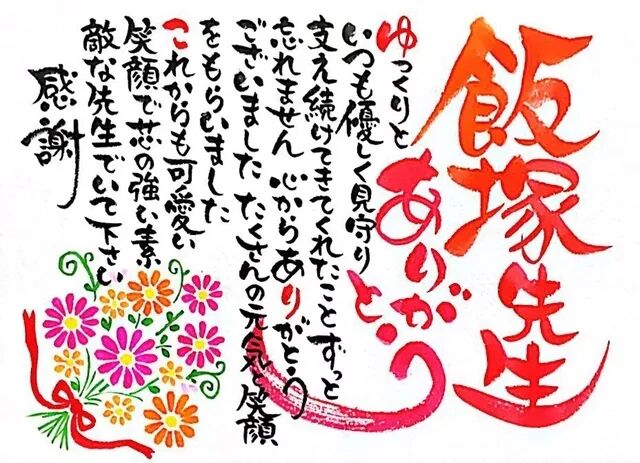 飯塚先生
ありがとう
ゆっくりと
いつも優しく見守り
支え続けてきてくれたことずっと
忘れません 心からありがとう
ございました たくさんの元気と笑顔
をもらいました
これからも可愛い
笑顔で芯の強い素
敵な先生でいて下さい
感謝